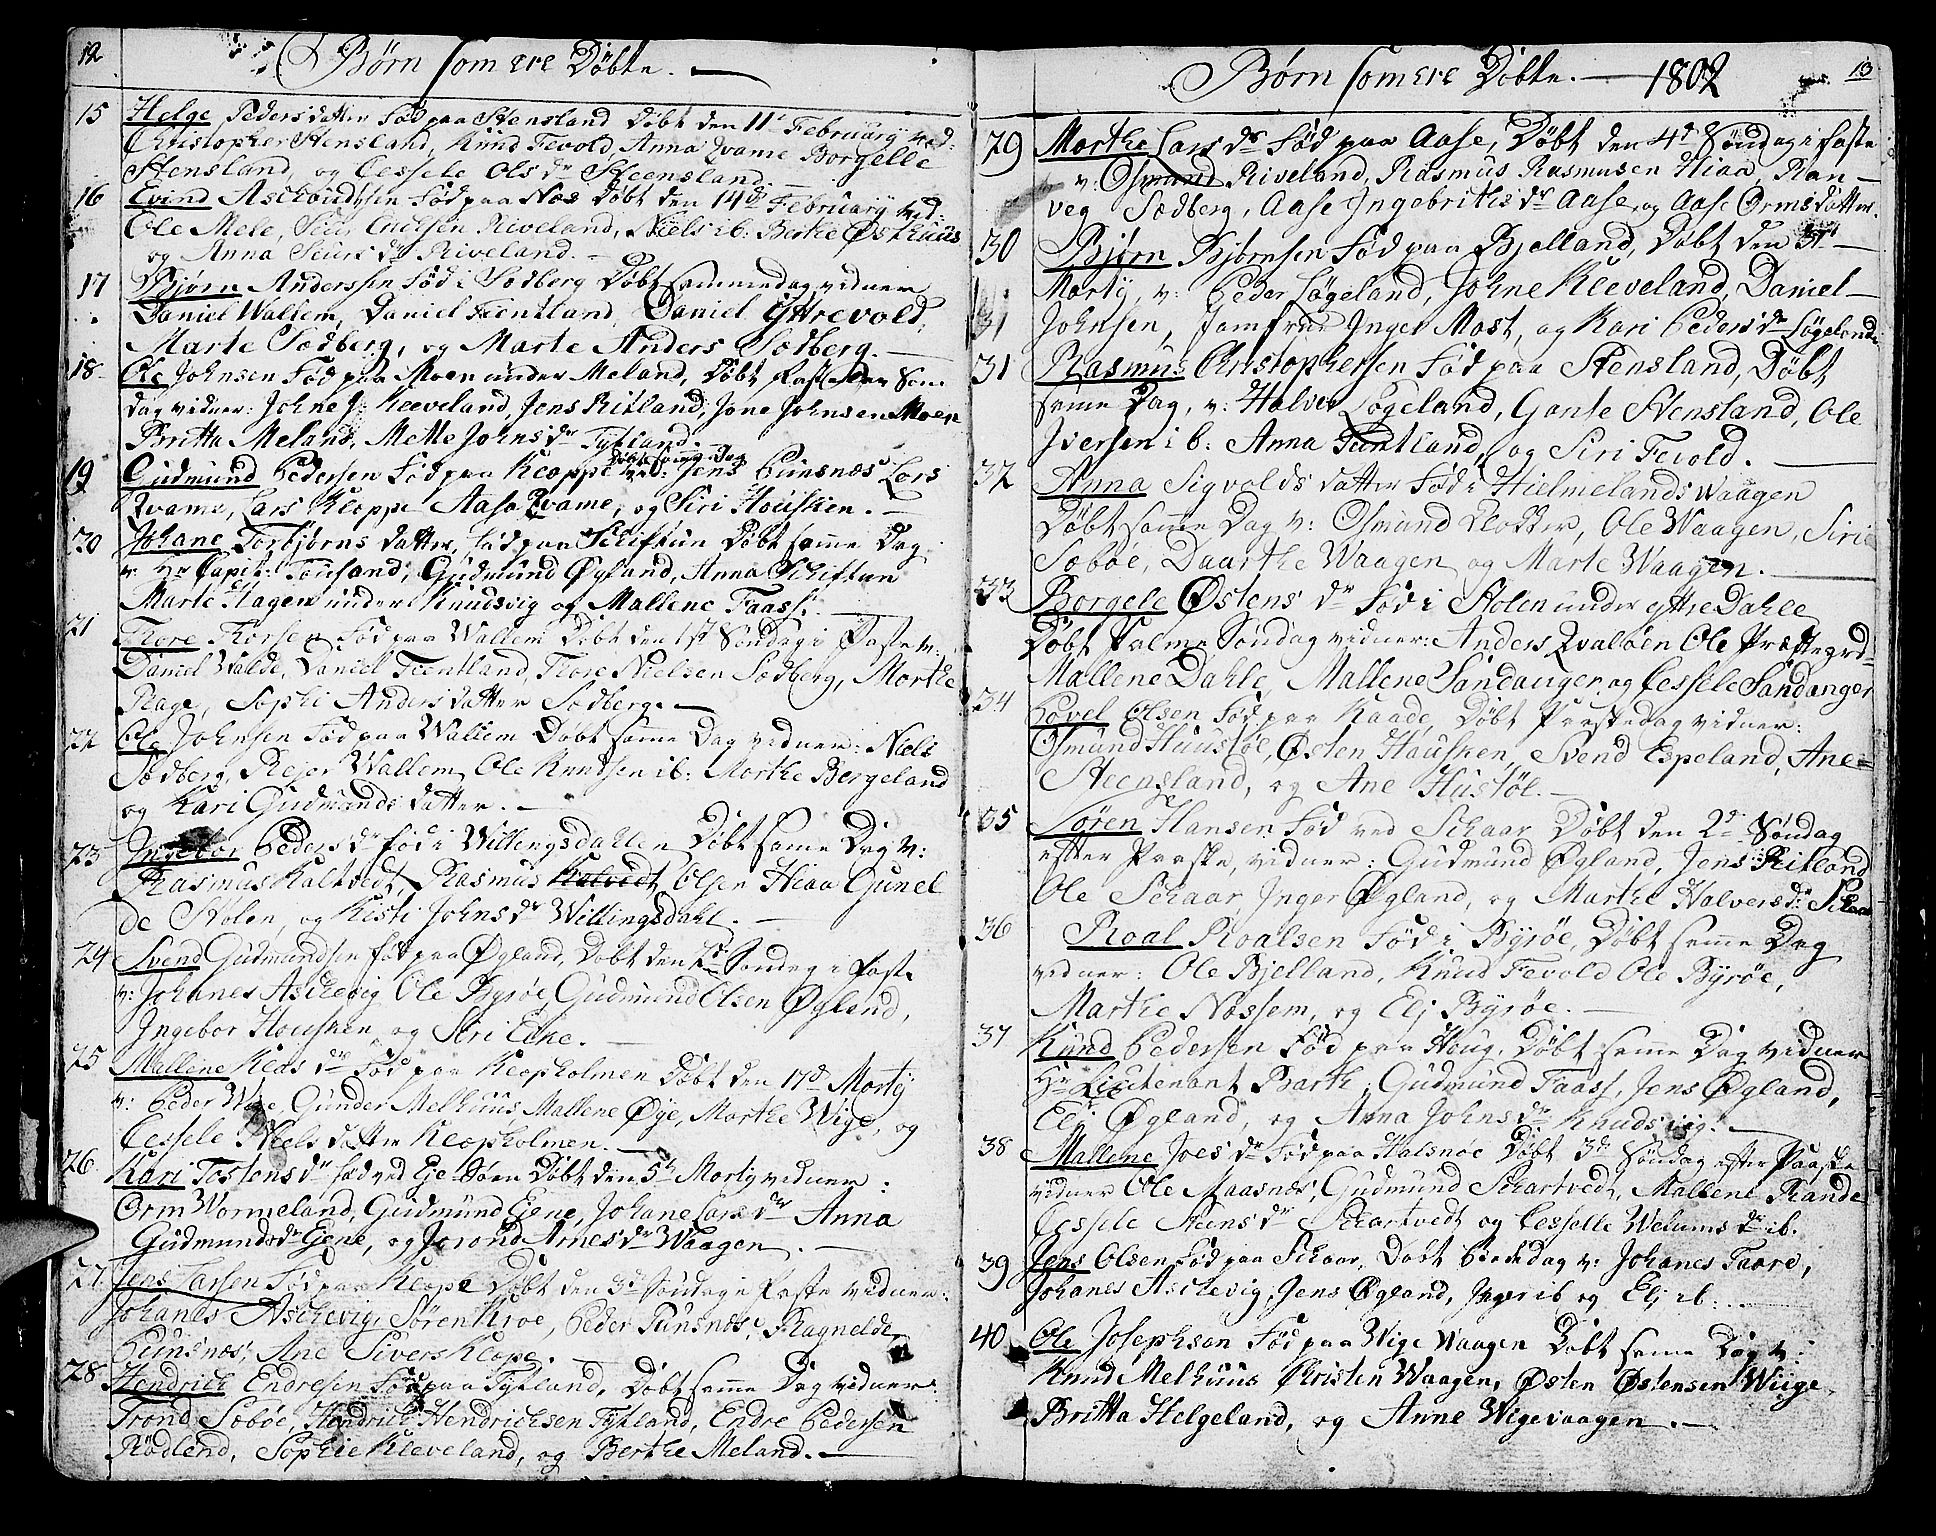 12
Børn som ere Døbte.
15 Helge Peders datter Fød paa Stensland Døbt den 11te February ved:
Christopher Stensland, Knud Fevold, Anna Qvame Borgelle
Stensland, og Cessele Ols dr Steensland.
16 Evind Aschoudsen Fød paa Næs Døbt den 14de February ved:
Ole Mele, Siur Erichsen Riveland, Niels ib: Berthe Østhuus
og Anna Siurs dr Riveland.
17 Bjørn Andersen Fød i Sødberg Døbt sammedag vidner
Daniel Wallem, Daniel Fientland, Daniel Yttrevold,
Marte Sødberg, og Marte Anders Sødberg.
18 Ole Johnsen Fød paa Moen under Meland, Døbt Faste Søn
dag vidner: Johne J: Kleeveland, Jens Ritland, Jone Johnsen Moen
Britta Meland, Mette Johns dr Tytland.
Døbt samme Dag
19 Gudmund Pedersen Fød paa Kloppe v: Jens Punsnæs Lars
Qvame, Lars Kloppe Aasa Qvame, og Siri Housken.
20 Johane Torbjørns datter, fød paa Schiftun Døbt samme Dag
v: Hr Capit: Tousand, Gudmund Øgland, Anna Schiftun
Marte Hagen under Knudsvig og Mallene Faass.
21 Tore Thorsen Fød paa Wallem Døbt den 1st Søndag i Faste v:
Daniel Walde, Daniel Fientland, Tore Nielsen Sødberg, Marthe
Rage, Sophi Anders datter Sødberg.
22 Ole Johnsen Fød paa Wallem Døbt samme Dag vidner: Niels
Sødberg, Rejer Wallem, Ole Knudsen ib: Marthe Bergeland
og Kari Gudmunds datter.
23 Ingebor Peders dr fød i Willingsdahlen Døbt samme Dag v:
Rasmus Kaltvedt, Rasmus Kalvedt Olsen Hiaa Gunel
de Stolen, og Kisti Johns dr Willingsdahl.
24 Svend Gudmundsen fød paa Øgland, Døbt den 2d Søndag i Faste
v: Johanes Aschevig Ole Byrøe, Gudmund Olsen Øgland,
Ingebor Housken og Siri Eene.
25 Mallene Klas dr Fød paa Klopholmen Døbt den 17d Morty
v: Peder Wige, Gunder Melhuus Mallene Øye, Marthe Wige, og
Cessele Niels datter Klopholmen.
26 Kari Tostens dr fød ved Eje Søen Døbt den 5te Morty vidner:
Orm Wormeland, Gudmund Eene, Johane Lars dr Anna
Gudmunds dr Ejene, og Jorond Arnes dr Waagen.
27 Jens Larsen Fød paa Klope Døbt den 3d Søndag i Faste vidner:
Johanes Aschevig, Søren Kroe, Peder Punsnæs, Ragnelde
Punsnæs, Ane Sivers Klope.
28 Hendrich Endresen Fød paa Tytland, Døbt samme Dag vidner:
Trond Søbøe, Hendrich Hendrichsen Tytland, Endre Pedersen
Rødlend, Sophie Kleveland, og Berthe Meland.
Børn som ere Døbte. 1802
13
29 Marthe Lars dr Fød paa Aase, Døbt den 4de Søndag i faste
v: Osmund Riveland, Rasmus Rasmusen Hiaa, Ran-
veg Sædberg, Aase Ingebrits dr Aase, og Aase Orms datter.
30 Bjørn Bjørnsen Fød paa Bjelland, Døbt den 31te
Morty, v: Peder Løgeland, Johne Kleeveland, Daniel
31 Johnsen, Jomfrue Inger Most, og Kari Peders dr Løgeland.
31 Rasmus Christophersen Fød paa Stensland, Døbt
samme Dag, v: Halver Løgeland, Gonte Stensland, Ole
Iversen ib: Anna Fientland, og Siri Fevold.
32 Anna Sigvolds datter Fød i Hielmelands Waagen
Døbt samme Dag v: Osmund Klokker, Ole Waagen, Siri
Søbøe, Daarthe Waagen og Marte Waagen.
33 Borgele Østens dr Fød i Stolen under ytre Dahle
Døbt Palme Søndag vidner: Anders Qvaløen Ole Præstegrd
Mallene Dahle, Mallene Sandanger og Cessele Sandanger
34 Povel Olsen Fød paa Kaade, Døbt Paaskedag vidner:
Osmund Huustøl, Østen Housken, Svend Espeland, Ane
Steensland, og Ane Hustøl.
35 Søren Hansen Fød ved Schaar Døbt den 2d Søndag
efter Paaske, vidner: Gudmund Øgland, Jens Ritland
Ole Schaar, Inger Øgland, og Marthe Halvers dr Schaar
36 Roal Roalsen Fød i Byrøe, Døbt samme Dag
vidner: Ole Bjelland, Knud Fevold Ole Byrøe,
Marthe Nøssem, og Elj Byrøe.
37 Knud Pedersen Fød paa Houg, Døbt samme Dag vidner
Hr Lieutenant Barth, Gudmund Faass, Jens Øgland,
Elj Øgland, og Anna Johns dr Knudsvig.
38 Mallene Joes dr Fød paa Halsnøe Døbt 3d Søndag efter Paaske
vidner Ole Maasnæs, Gudmund Schartvedt, Mallene Rande
Cessele Steens dr Schartvedt og Cesselle Welums dr ib.
39 Jens Olsen Fød paa Schaar, Døbt Beededag v: Johanes Faare,
Johanes Aschevig, Jens Øgland, Inger ib og Elj ib:
40 Ole Josephsen Fød paa Wige Waagen Døbt samme Dag v:
Knud Melhuus Christen Waagen, Østen Østensen Wiige,
Britta Helgeland, og Anne Wigevaagen.